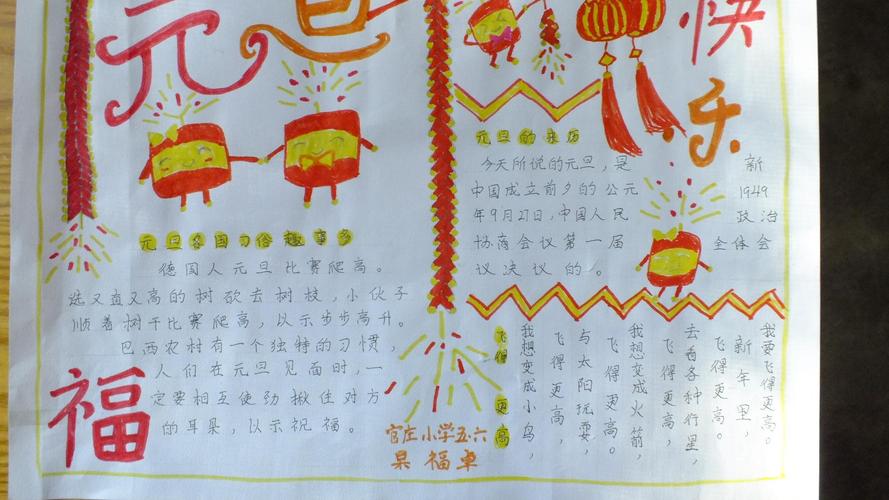 元旦
快乐
元旦各国习俗趣事多
德国人元旦比赛爬高。
选又直又高的树砍去树枝,小伙子
顺着树干比赛爬高,以示步步高升。
巴西农村有一个独特的习惯,
人们在元旦见面时,一
定要相互使劲揪住对方
的耳朵,以示祝福。
福
元旦的来历
今天所说的元旦,是新
中国成立前夕的公元1949
年9月27日,中国人民政治
协商会议第一届全体会
议决议的。
飞得更高
我想变成小鸟,
飞得更高,
与太阳玩耍,
飞得更高。
我想变成火箭,
飞得更高,
去看各种行星,
飞得更高。
新年里,
我要飞得更高。
官庄小学五.六
杲福卓